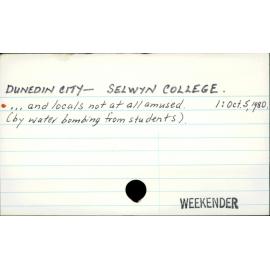 DUNEDIN CITY— SELWYN COLLEGE.
... and locals not at all amused. 1: Oct. 5, 1980.
(by water bombing from students)
WEEKENDER